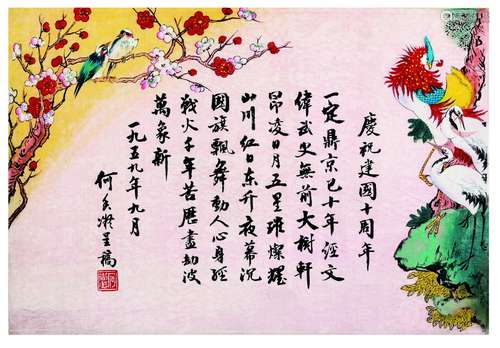 慶祝建國十周年
一定鼎京已十年經文
偉武史無前大樹軒
昂凌日月五星璀燦耀
山川紅日东升夜幕沉
國旗飄舞動人心身經
戰火千年苦歷盡劫波
萬象新
一九五九年九月
何香凝呈稿